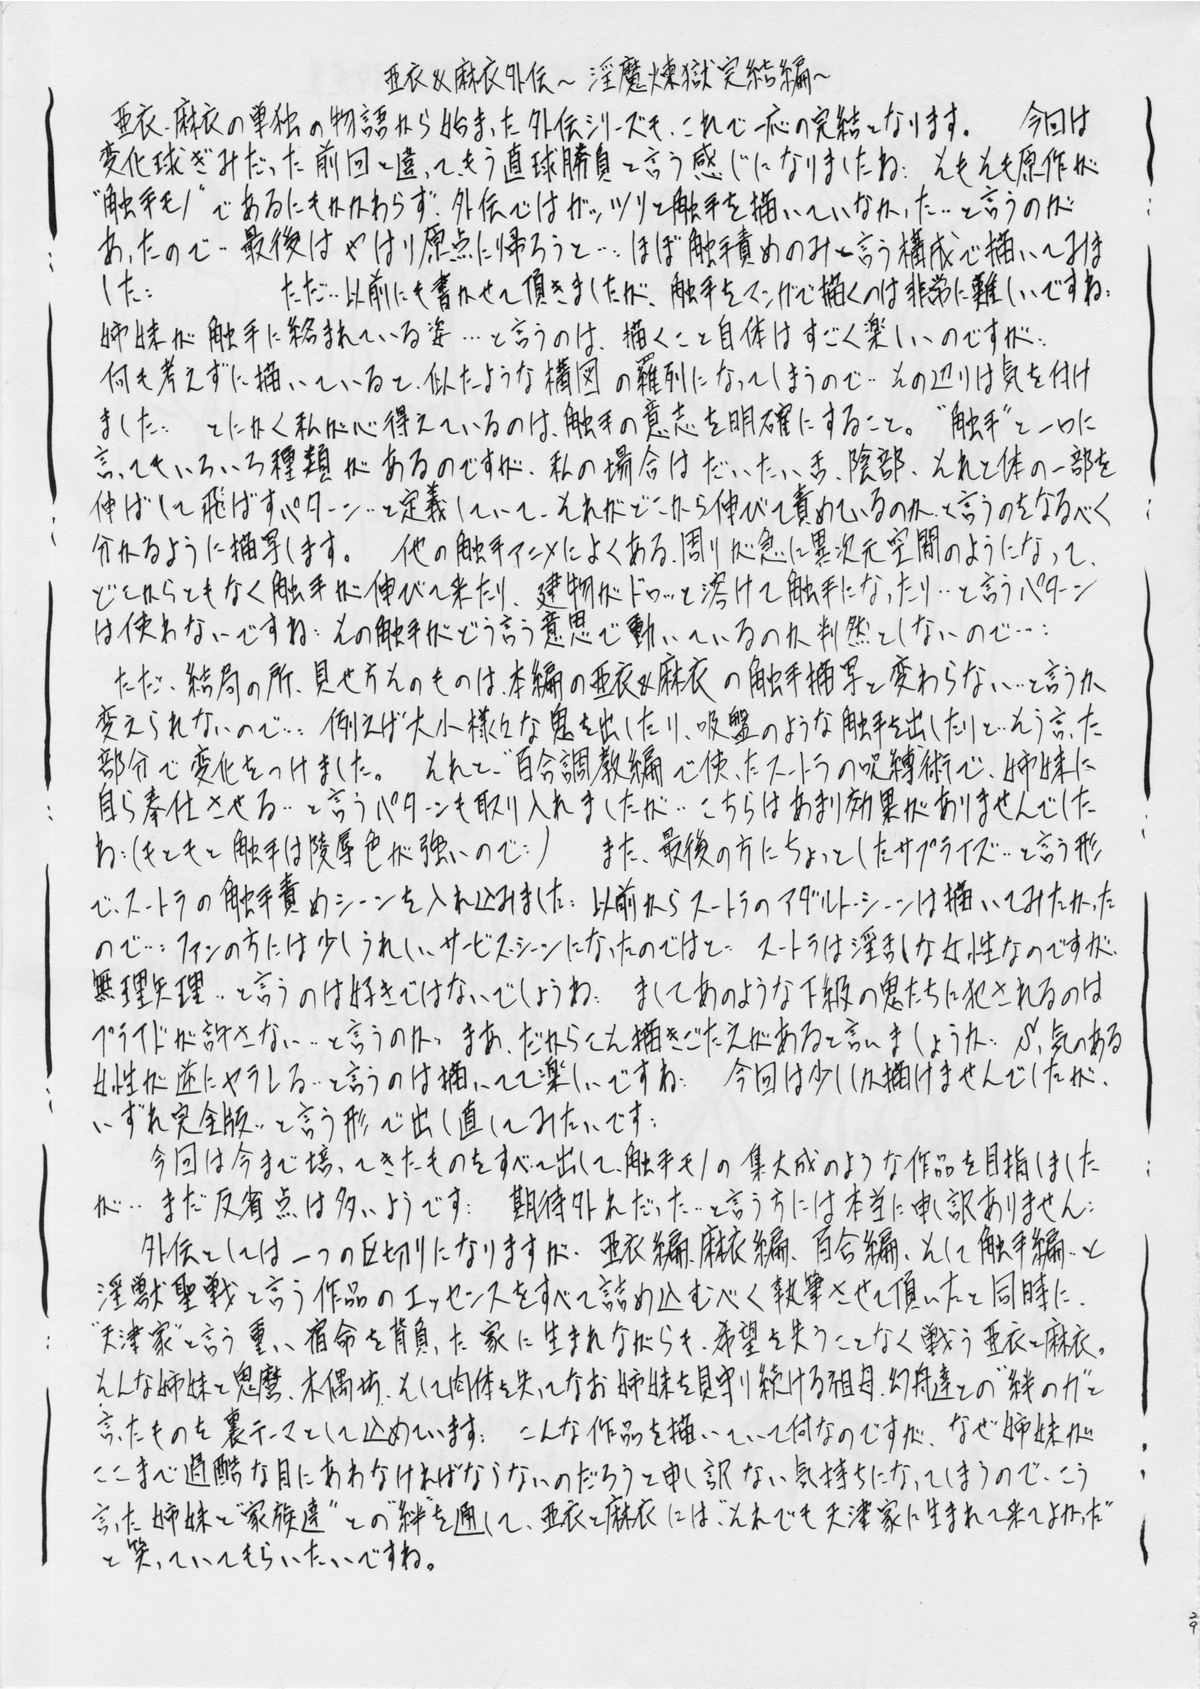 亜衣&麻衣外伝～淫魔煉獄完結編～
亜衣・麻衣の単独の物語から始まった外伝シリーズも、これで一応の完結となります。 今回は
変化球ぎみだった前回と違って、もう直球勝負と言う感じになりましたね… そもそも原作が
"触手モノ"であるにもかかわらず、外伝ではガッツリと触手を描いていなかった…と言うのが
あったので…最後はやはり原点に帰ろうと…ほぼ触手責めのみと言う構成で描いてみま
した… ただ…以前にも書かせて頂きましたが、触手をマンガで描くのは非常に難しいですね…
姉妹が触手に絡まれている姿…と言うのは、描くこと自体はすごく楽しいのですが…
何も考えずに描いていると、似たような構図の羅列になってしまうので…その辺りは気を付け
ました… とにかく私が心得ているのは、触手の意志を明確にすること。"触手"と一口に
言ってもいろいろ種類があるのですが、私の場合はだいたい舌、陰部、それと体の一部を
伸ばして飛ばすパターン…と定義していて、それがどこから伸びて責めているのか、と言うのをなるべく
分かるように描写します。 他の触手アニメによくある、周りが急に異次元空間のようになって、
どこからともなく触手が伸びて来たり、建物がドロッと溶けて触手になったり…と言うパターン
は使わないですね…その触手がどう言う意思で動いているのか判然としないので…
ただ、結局の所、見せ方そのものは、本編の亜衣&麻衣の触手描写と変わらない…と言うか
変えられないので…例えば大小様々な鬼を出したり、吸盤のような触手を出したりと…そう言った
部分で変化をつけました。 それと、"百合調教編"で使ったスートラの呪縛術で、姉妹に
自ら奉仕させる…と言うパターンも取り入れましたが…こちらはあまり効果がありませんでした
ね…(もともと触手は陵辱色が強いので…) また、最後の方にちょっとしたサプライズ…と言う形
で、スートラの触手責めシーンを入れ込みました…以前からスートラのアダルト・シーンは描いてみたかった
ので…ファンの方には少しうれしい、サービス・シーンになったのではと… スートラは淫乱な女性なのですが、
無理矢理…と言うのは好きではないでしょうね… ましてあのような下級の鬼たちに犯されるのは
プライドが許さない…と言うのか、まあ、だからこそ描きごたえがあると言いましょうか… S気のある
女性が逆にヤラレる…と言うのは描いてて楽しいですね… 今回は少ししか描けませんでしたが、
いずれ完全版…と言う形で出し直してみたいです…
今回は今まで培ってきたものをすべて出して、触手モノの集大成のような作品を目指しました
が… まだ反省点は多いようです… 期待外れだった…と言う方には本当に申し訳ありません…
外伝としては一つの区切りになりますが、亜衣編、麻衣編、百合編、そして触手編…と
淫獣聖戦と言う作品のエッセンスをすべて詰め込むべく執筆させて頂いたと同時に、
"天津家"と言う重い宿命を背負った家に生まれながらも、希望を失うことなく戦う亜衣と麻衣。
そんな姉妹と鬼麿、木偶坊、そして肉体を失ってなお姉妹を見守り続ける祖母、幻舟達との"絆の力"と
言ったものを裏テーマとして込めています… こんな作品を描いていて何なのですが、なぜ姉妹が
ここまで過酷な目にあわなければならないのだろうと申し訳ない気持ちになってしまうので、こう
言った姉妹と"家族達"との"絆"を通して、亜衣と麻衣には、"それでも天津家に生まれて来てよかった"
と笑っていてもらいたいですね。
29